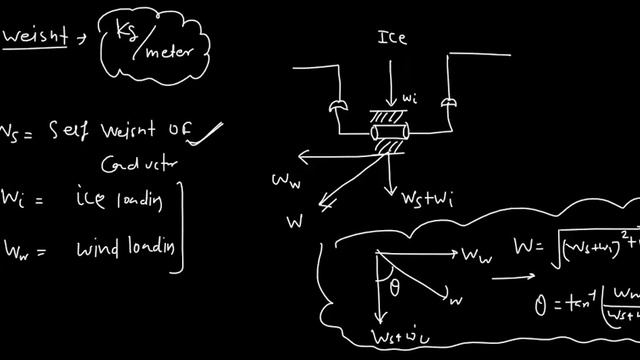 Weight → Kg/meter
Ws = Self Weight of Conductor
Wi = ice loadin
Ww = wind loadin
Ice
wi
Ww
W
Ws+wi
Ww
θ
w
Ws+wi
W = √(Ws+wi)²+
θ = tan⁻¹(Ww/Ws+w